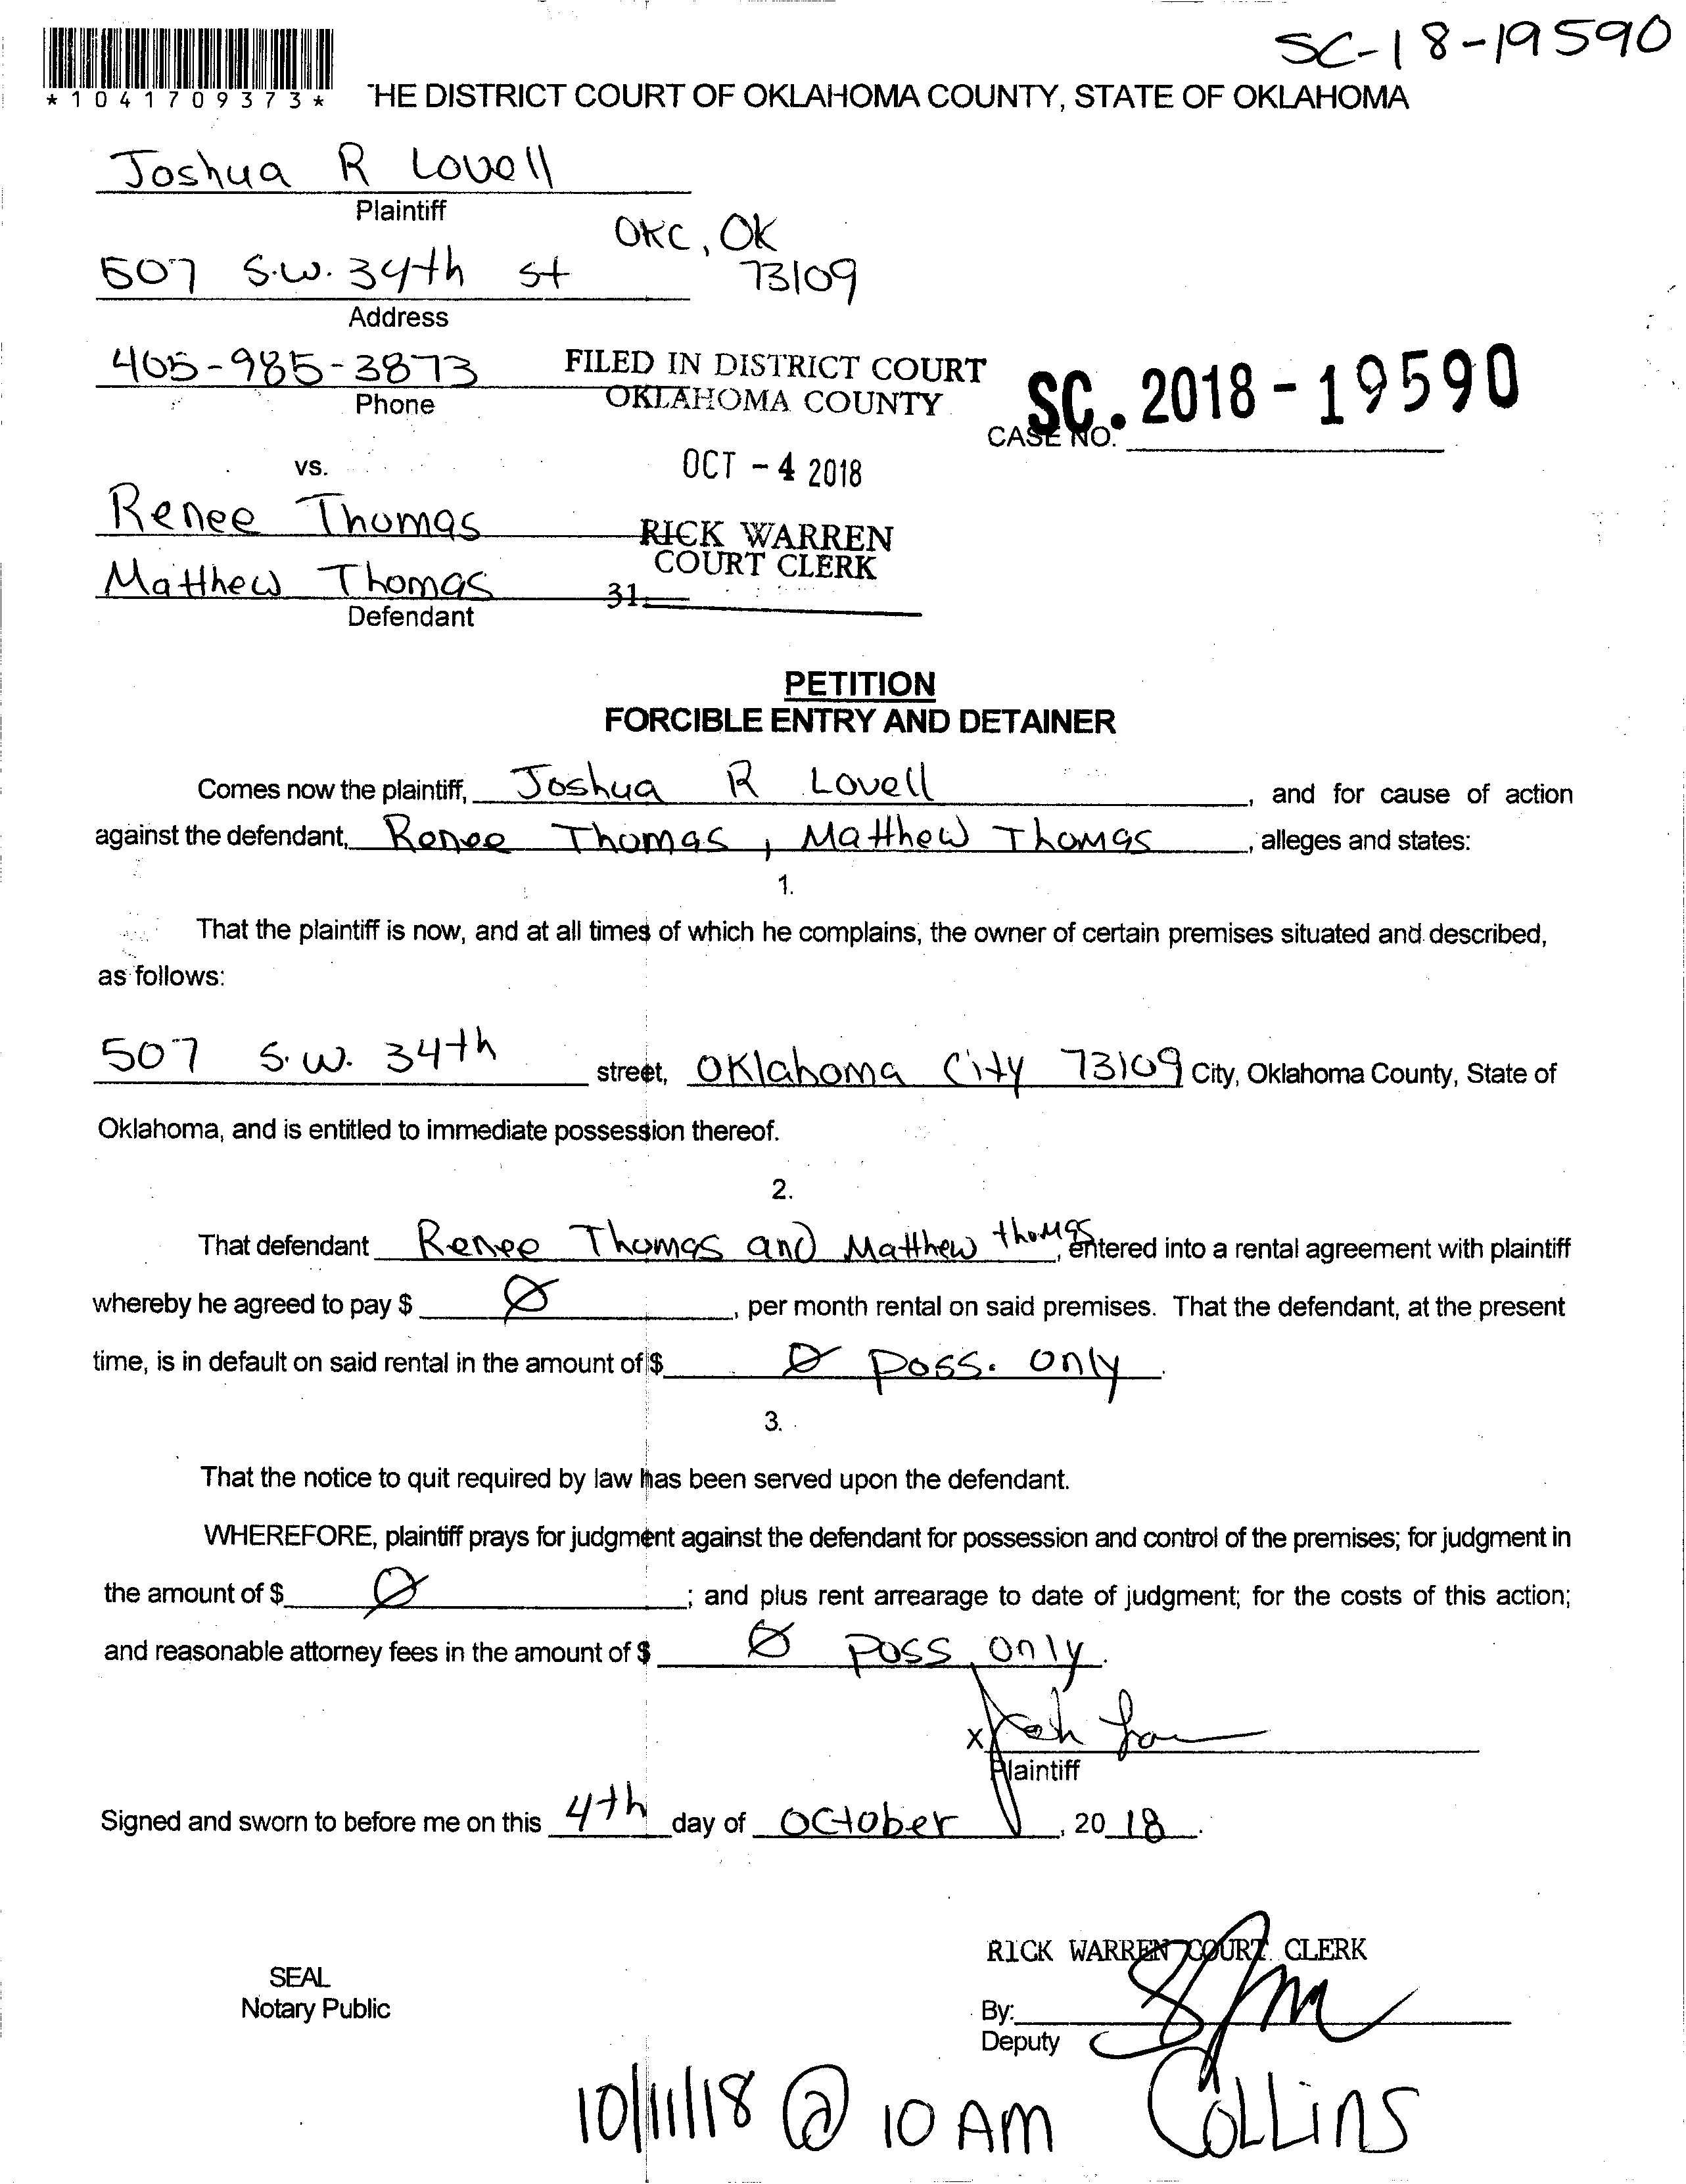 SC-18-19590
*1041709373*
THE DISTRICT COURT OF OKLAHOMA COUNTY, STATE OF OKLAHOMA
Joshua R Lovell
Plaintiff
OKC, OK
507 S.W. 34th St 73109
Address
405-985-3873
Phone
FILED IN DISTRICT COURT
OKLAHOMA COUNTY
SC. 2018-19590
CASE NO.
vs.
OCT - 4 2018
Renee Thomas
RICK WARREN
COURT CLERK
Matthew Thomas
31
Defendant
PETITION
FORCIBLE ENTRY AND DETAINER
Comes now the plaintiff, Joshua R Lovell, and for cause of action
against the defendant, Renee Thomas, Matthew Thomas, alleges and states:
1.
That the plaintiff is now, and at all times of which he complains, the owner of certain premises situated and described,
as follows:
507 S.W. 34th street, Oklahoma City 73109 City, Oklahoma County, State of
Oklahoma, and is entitled to immediate possession thereof.
2.
That defendant Renee Thomas and Matthew thomas, entered into a rental agreement with plaintiff
whereby he agreed to pay $ Ø, per month rental on said premises. That the defendant, at the present
time, is in default on said rental in the amount of $ Ø poss. only.
3.
That the notice to quit required by law has been served upon the defendant.
WHEREFORE, plaintiff prays for judgment against the defendant for possession and control of the premises; for judgment in
the amount of $ Ø; and plus rent arrearage to date of judgment; for the costs of this action;
and reasonable attorney fees in the amount of $ Ø poss only.
X
Plaintiff
Signed and sworn to before me on this 4th day of October, 2018.
RICK WARREN COURT CLERK
SEAL
Notary Public
By:
Deputy
10/11/18 @ 10 AM Collins